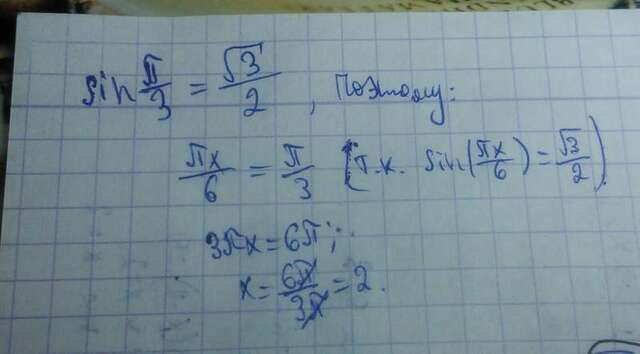 sin π/3 = √3/2, поэтому:
πx/6 = π/3 (т.к. sin(πx/6) = √3/2).
3πx = 6π;
x = 6π/3π = 2.